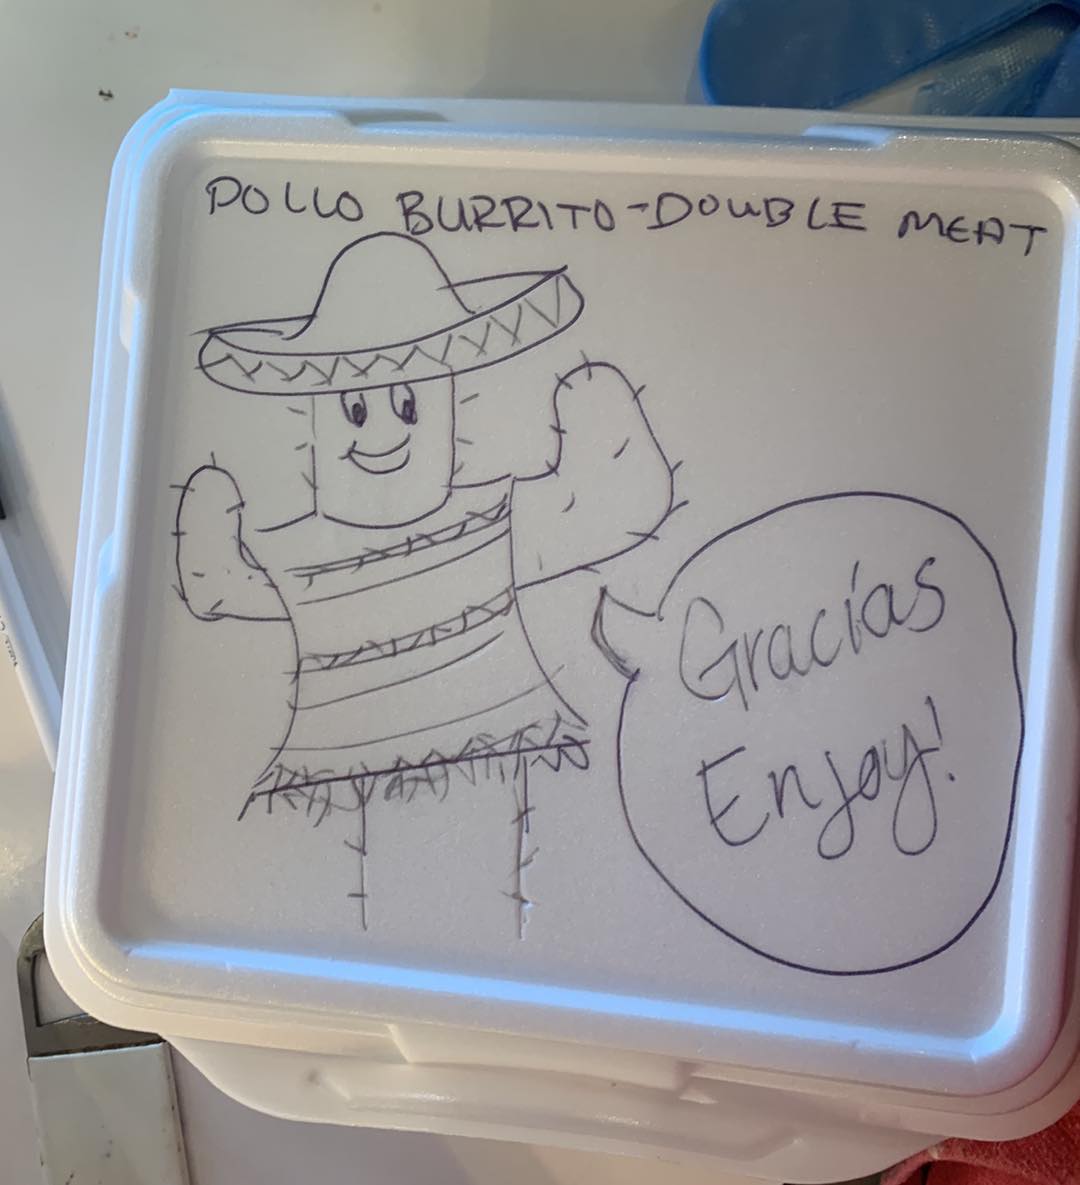 POLLO BURRITO-DOUBLE MEAT
Gracias
Enjoy!